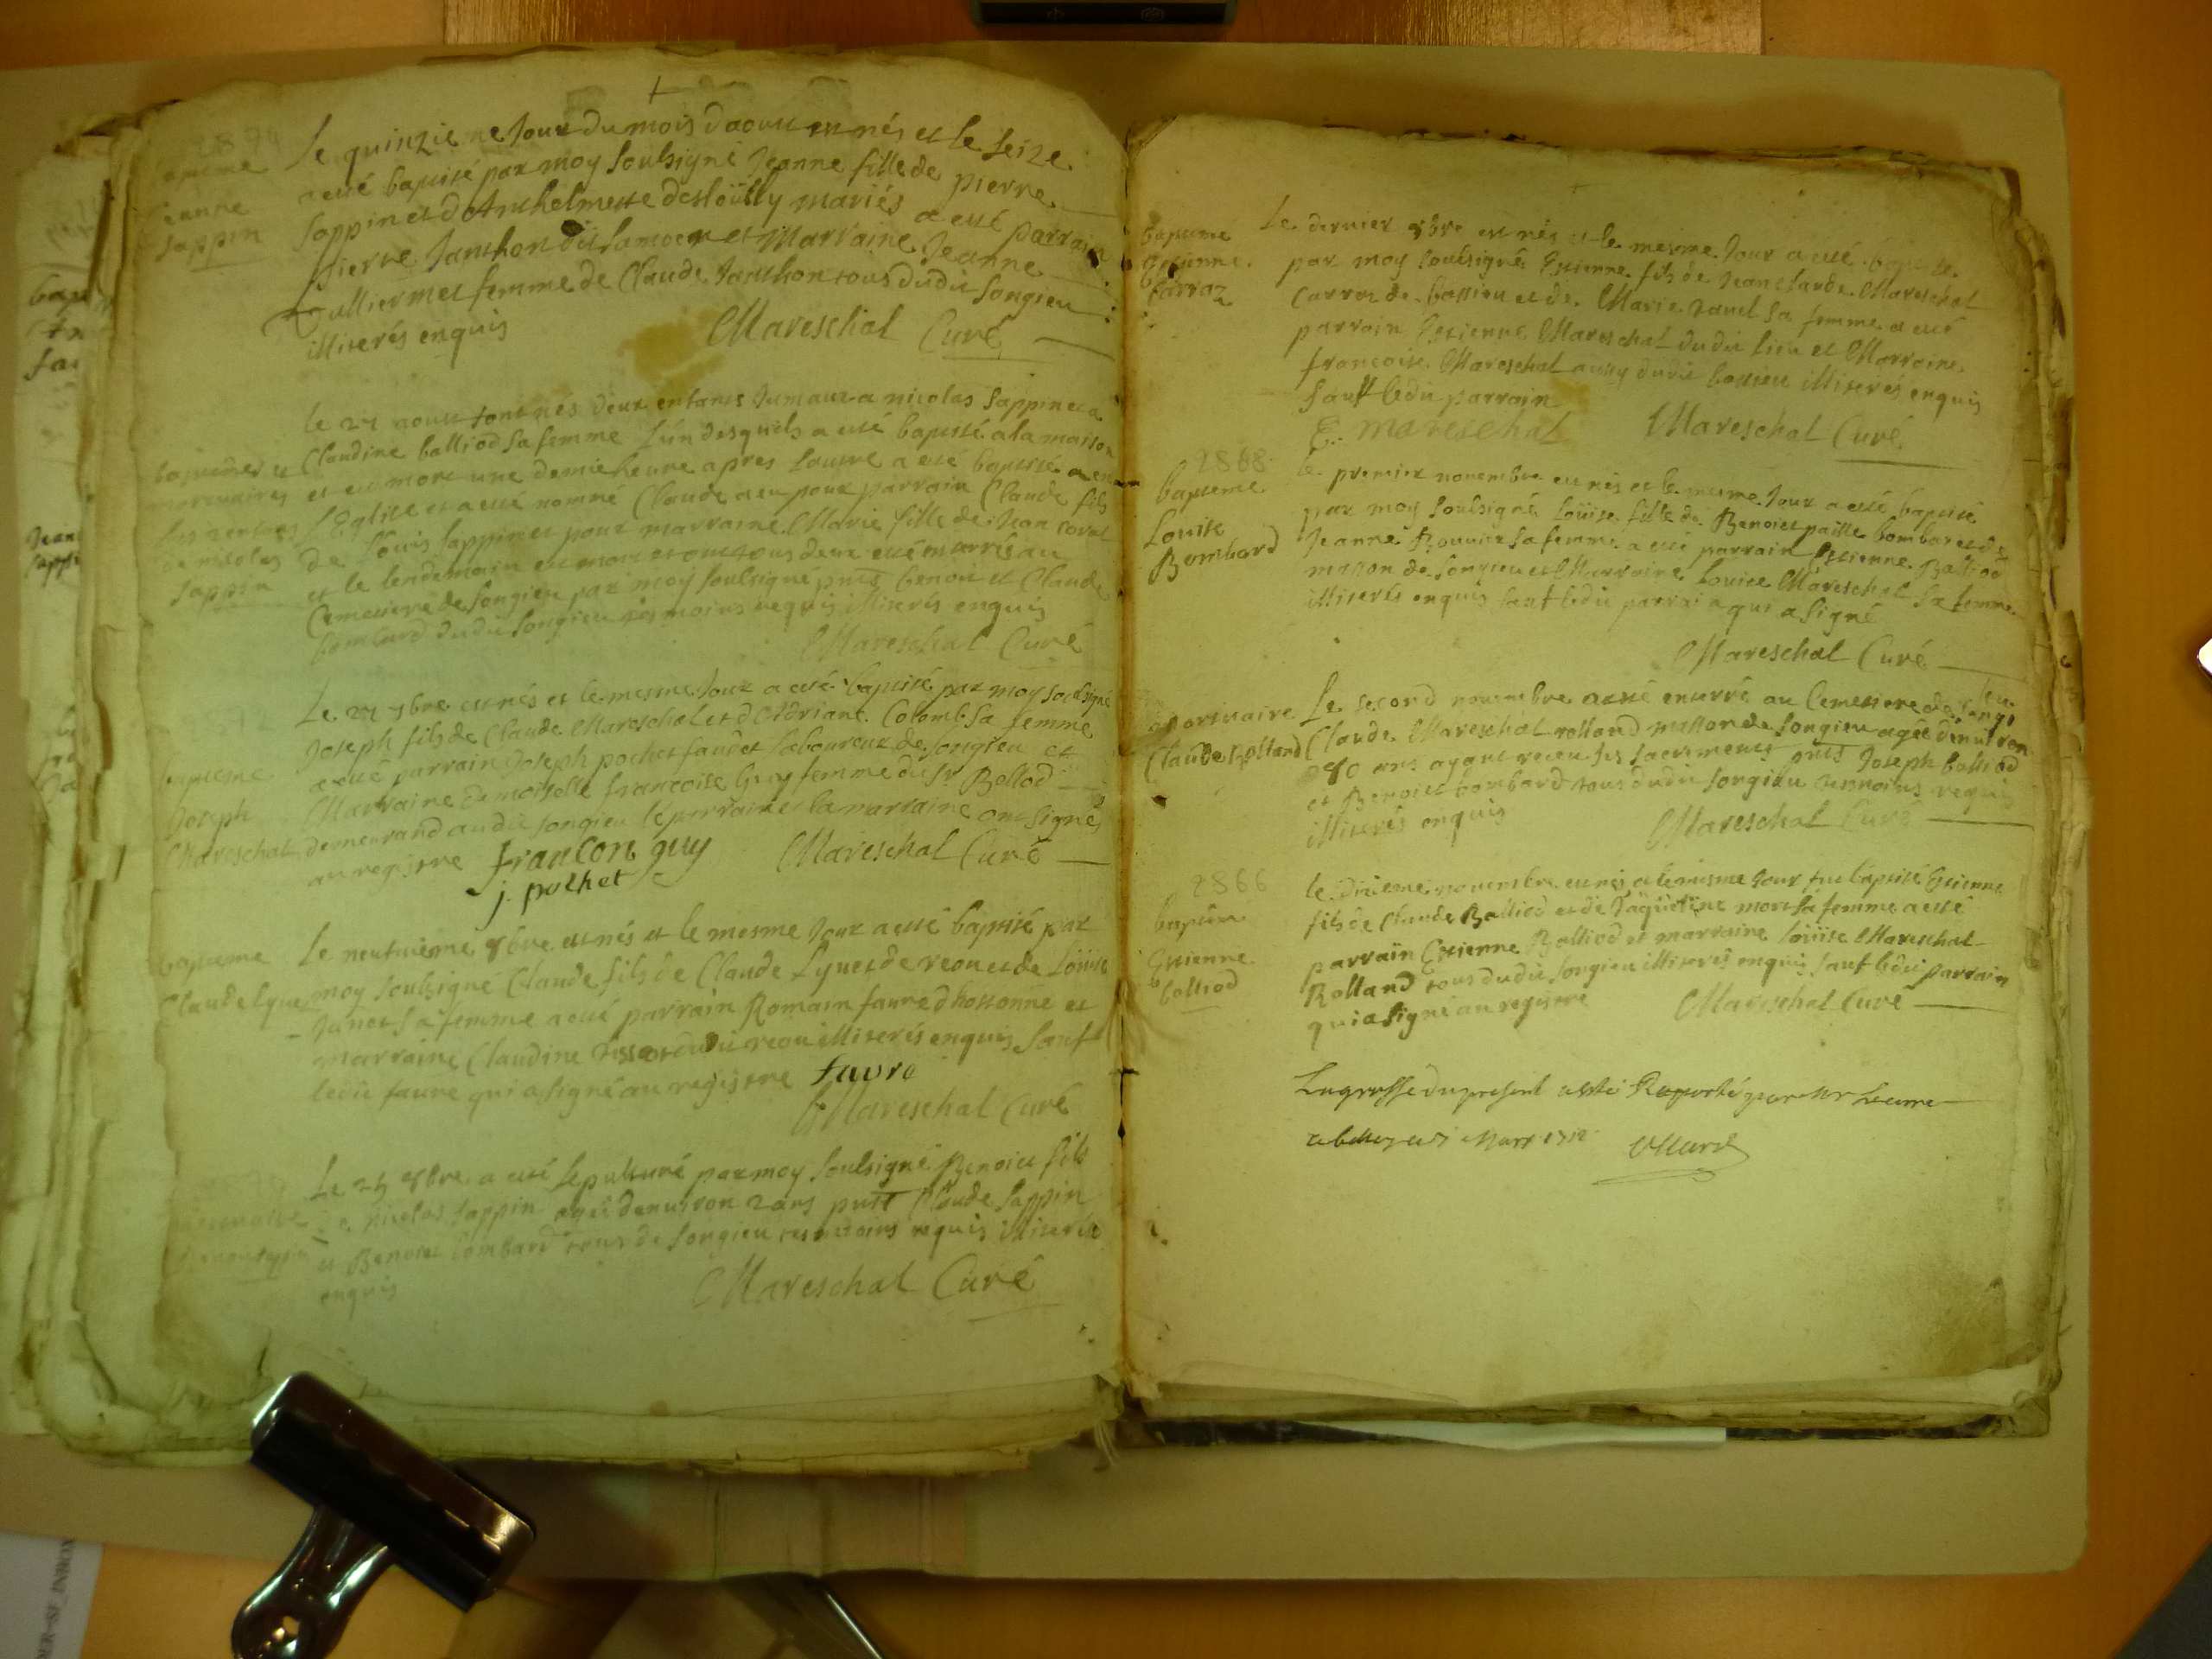 2874
Le quinzieme Jour du mois daoust est nés et le seize
a esté baptisé par moy soubsigné Jeanne fille de pierre
Sappin et dAnthelmette desloüilly mariés a esté parrain
pierre Janthon dit et Marraine Jeanne
femme de Claude Janthon tous dudit Songieu
illiterés enquis
Mareschal Curé
Jeanne
Sappin
Le 27 aoust sont nés deux enfants Jumaux a nicolas Sappin et a
Claudine balliod sa femme l'un desquels a esté baptisé a la maison
et est mort une demie heure apres l'autre a esté baptisé
l'Eglise et a esté nommé Claude a eu pour parrain Claude fils
de Louis Sappin et pour marraine Marie fille de Jean
et le lendemain est mort et ont tous deux esté enterrés au
Cemetiere de Songieu par moy soubsigné pnts benoit et Claude
bombard dudit Songieu tesmoins requis illiterés enquis
Mareschal Curé
mortuaires
de nicolas
Sappin
Le 27 7bre est nés et le mesme Jour a esté baptisé par moy soubsigné
Joseph fils de Claude Mareschal et dAdriane Colomb sa femme
a esté parrain Joseph pochet laboureur de Songieu et
Marraine damoiselle francoise Guy femme du Sr Balliod
demeurand audit Songieu le parrain et la marraine ont signés
au registre francon guy Mareschal Curé
j. pochet
bapteme
Joseph
Mareschal
Le neufvieme 8bre est nés et le mesme Jour a esté baptisé par
moy soubsigné Claude fils de Claude Lyuet de reou et de Loüise
Junet sa femme a esté parrain Romain faure dhostonne et
marraine Claudine dudit reou illiterés enquis sauf
ledit faure qui a signé au registre favre
Mareschal Curé
bapteme
Le 25 8bre a esté sepulturé par moy soubsigné Benoict fils
de nicolas Sappin agé denviron 2 ans pnts Claude Sappin
et Benoict bombard tous de Songieu tesmoins requis illiterés
enquis
Mareschal Curé
bapteme
Estienne
Carraz
Le dernier 8bre est nés et le mesme Jour a esté baptisé
par moy soubsigné Estienne fils de Jean claude Mareschal
Carraz de bassieu et de Marie sa femme a esté
parrain Estienne Mareschal dudit lieu et Marraine
francoise Mareschal aussy dudit bassieu illiterés enquis
sauf ledit parrain
E. mareschal Mareschal Curé
2868
bapteme
Louise
Bombard
le premier novembre est nés et le mesme Jour a esté baptisé
par moy soubsigné Loüise fille de Benoict paille bombard et de
Jeanne sa femme a esté parrain Estienne Balliod
masson de Songieu et Marraine Louise Mareschal sa femme
illiterés enquis sauf ledit parrain qui a signé
Mareschal Curé
mortuaire
Claude Rolland
Le second novembre a esté enterré au Cemetiere de Songieu
Claude Mareschal rolland masson de Songieu agée d'environ
80 ans ayant receu ses sacrements pnts Joseph balliod
et Benoict bombard tous dudit Songieu tesmoins requis
illiterés enquis Mareschal Curé
2866
baptem
Estienne
balliod
le dixieme novembre est nés et le mesme Jour fut baptisé Estienne
fils de Claude Balliod et de Jaqueline mort sa femme a esté
parrain Estienne Balliod et marraine Loüise Mareschal
Rolland tous dudit Songieu illiterés enquis sauf ledit parrain
qui a signé au registre Mareschal Curé
La grosse du present a esté Raporté par Mr Le curé
a belley ce Mars